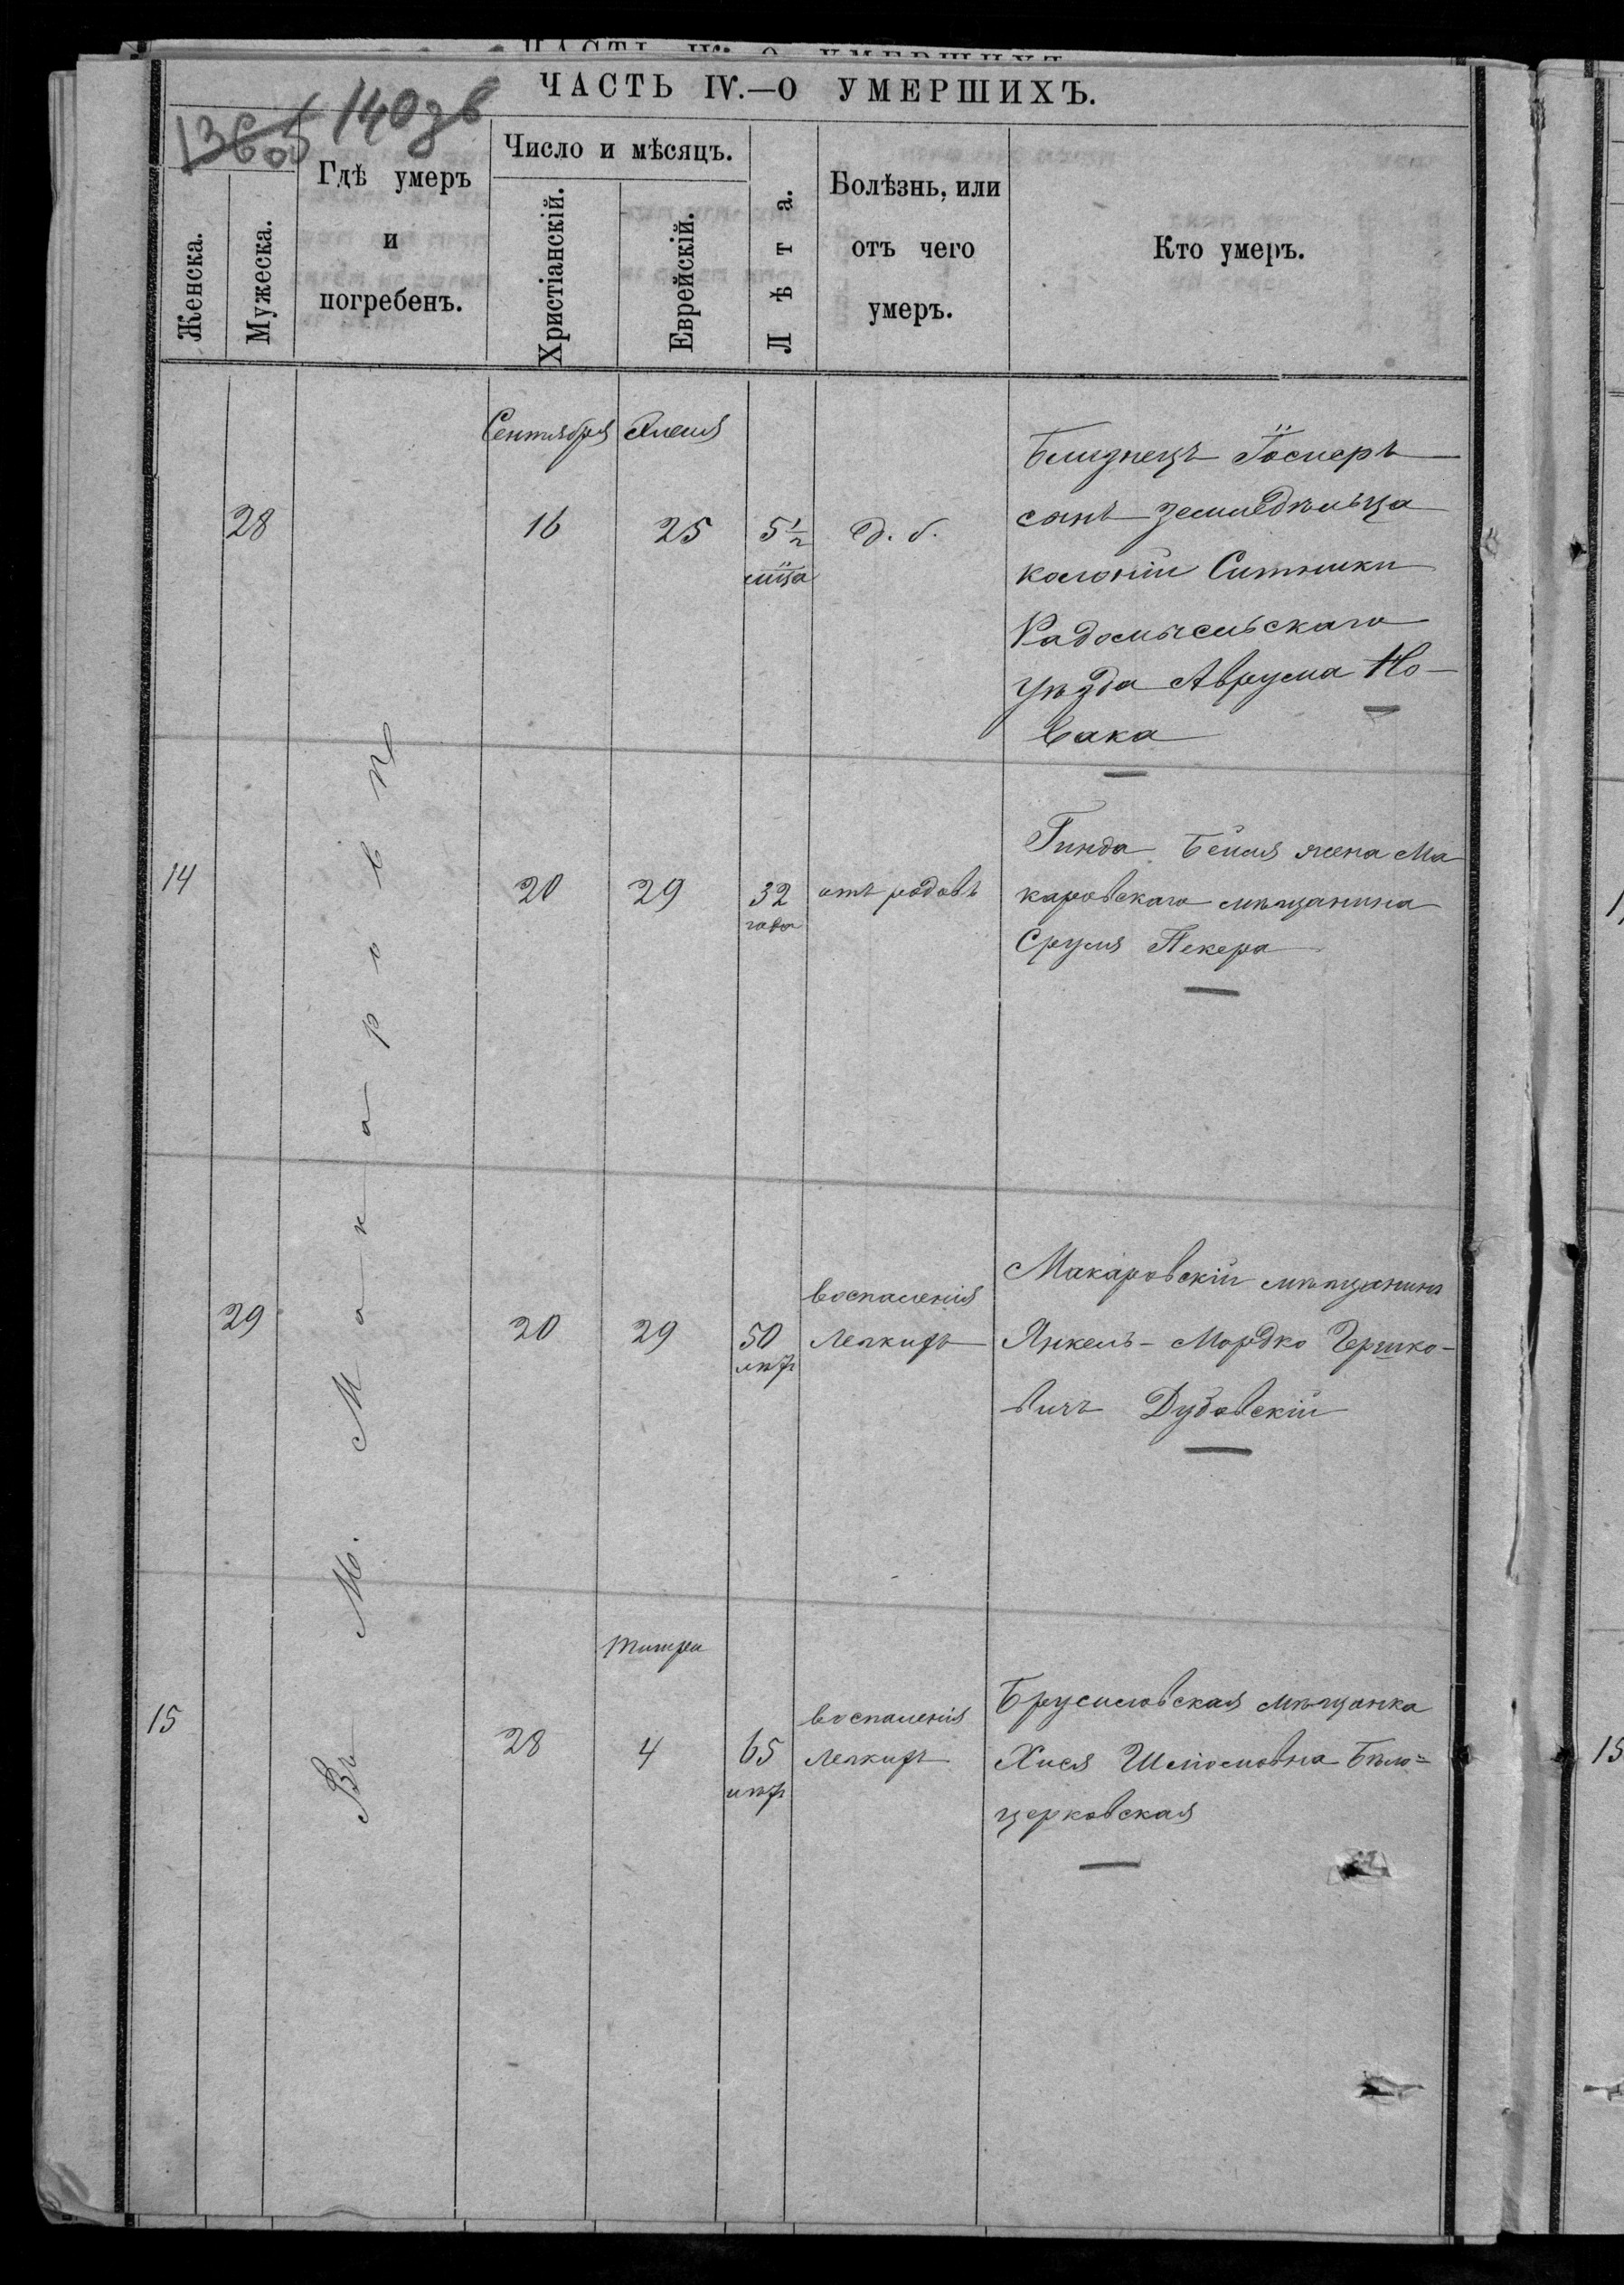 ЧАСТЬ IV.—О УМЕРШИХЪ.
1365
140зв
Женска.
Мужеска.
Гдѣ умеръ
и
погребенъ.
Число и мѣсяцъ.
Христіанскій.
Еврейскій.
Лѣта.
Болѣзнь, или
отъ чего
умеръ.
Кто умеръ.
Въ М. Макаровѣ
Сентября Элеля
28 16 25 5½
мца
Близнецъ Іосперъ
сынъ земледѣльца
колоніи Ситники
Радомысльскаго
уѣзда Аврума Но-
вака
14 20 29 32 отъ родовъ
года
Гинда Бейля жена Ма
каровскаго мѣщанина
Сруля Пекера
29 20 29 50
лѣт
воспаленія
легкихъ
Макаровскій мѣщанинъ
Янкель-Мордко Гершко-
вичъ Дубовскій
Тишри
15 28 4 65
лѣт
воспаленія
легкихъ
Брусиловская мѣщанка
Хися Шліомовна Бѣло=
церковская
15